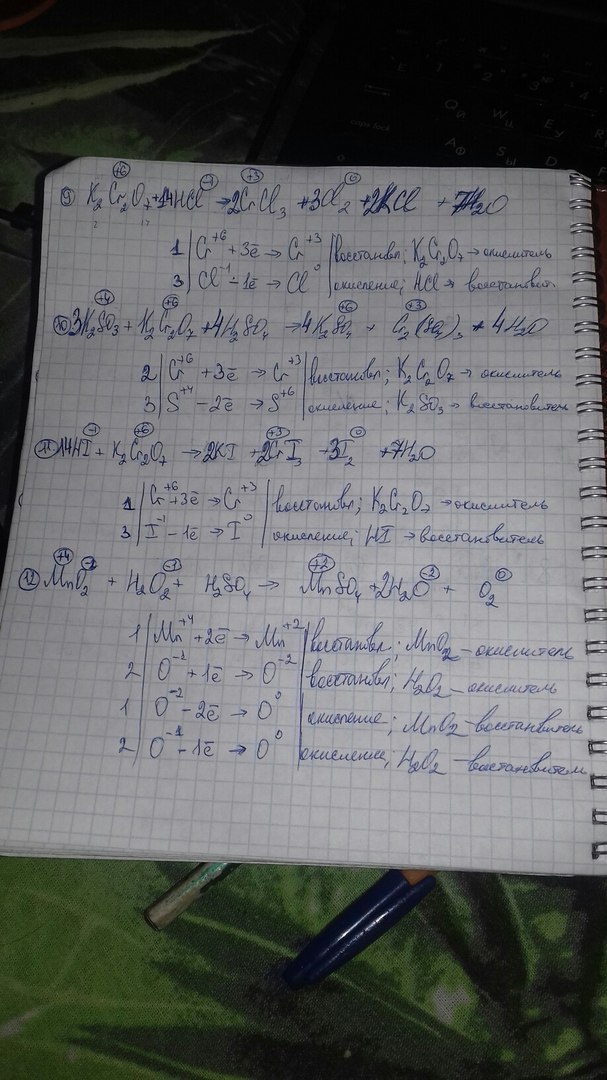 9) K₂Cr₂⁺⁶O₇ + 14HCl⁻¹ → 2Cr⁺³Cl₃ + 3Cl₂⁰ + 2KCl + 7H₂O
1 | Cr⁺⁶ + 3ē → Cr⁺³ | восстановл; K₂Cr₂O₇ → окислитель
3 | Cl⁻¹ - 1ē → Cl⁰ | окисление; HCl → восстановит.
10) 3K₂S⁺⁴O₃ + K₂Cr₂⁺⁶O₇ + 4H₂SO₄ → 4K₂S⁺⁶O₄ + Cr₂⁺³(SO₄)₃ + 4H₂O
2 | Cr⁺⁶ + 3ē → Cr⁺³ | восстановл; K₂Cr₂O₇ → окислитель
3 | S⁺⁴ - 2ē → S⁺⁶ | окисление; K₂SO₃ → восстановитель
11) 14HI⁻¹ + K₂Cr₂⁺⁶O₇ → 2KI + 2Cr⁺³I₃ + 3I₂⁰ + 7H₂O
1 | Cr⁺⁶ + 3ē → Cr⁺³ | восстановл; K₂Cr₂O₇ → окислитель
3 | I⁻¹ - 1ē → I⁰ | окисление; HI → восстановитель
12) Mn⁺⁴O₂⁻² + H₂O₂⁻¹ + H₂SO₄ → Mn⁺²SO₄ + 2H₂O⁻² + O₂⁰
1 | Mn⁺⁴ + 2ē → Mn⁺² | восстановл; MnO₂ - окислитель
2 | O⁻¹ + 1ē → O⁻² | восстановл; H₂O₂ - окислитель
1 | O⁻² - 2ē → O⁰ | окисление; MnO₂ - восстанвитель
2 | O⁻¹ - 1ē → O⁰ | окисление; H₂O₂ - восстанвитель